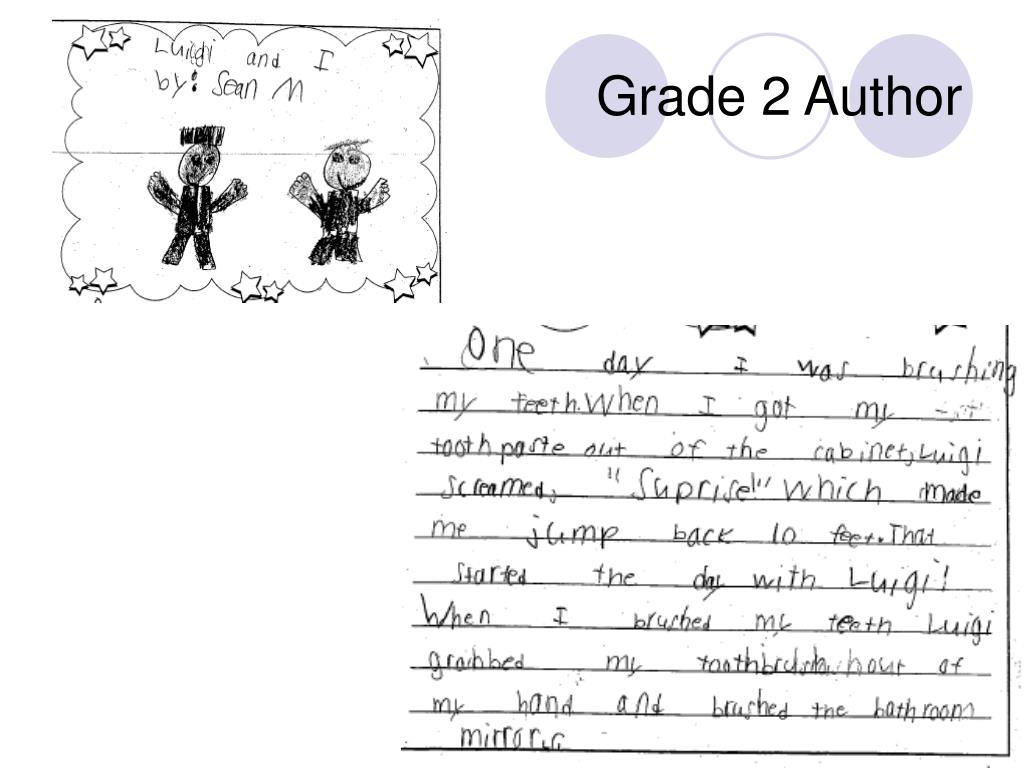 Luigi and I
by: Sean M
Grade 2 Author
One day I was brushing
my teeth. When I got my
toothpaste out of the cabinet, Luigi
screamed, "Suprise!" Which made
me jump back 10 feet. That
started the day with Luigi!
When I brushed my teeth Luigi
grabbed my out of
my hand and brushed the bathroom
mirror.